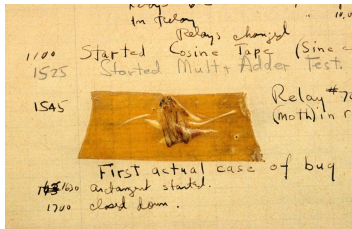 In Relay
Relays changed
1100 Started Cosine Tape (Sine
1525 Started Mult + Adder Test.
1545 Relay #70
(Moth) in r
First actual case of bug
1630 arctangent started.
1700 closed down.